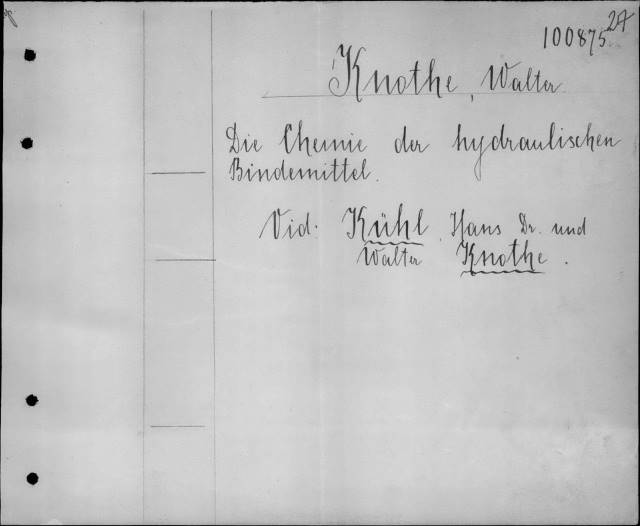 100875
Knothe, Walter
Die Chemie der hydraulischen
Bindemittel.
Vid. Kühl, Hans Dr. und
Walter Knothe.